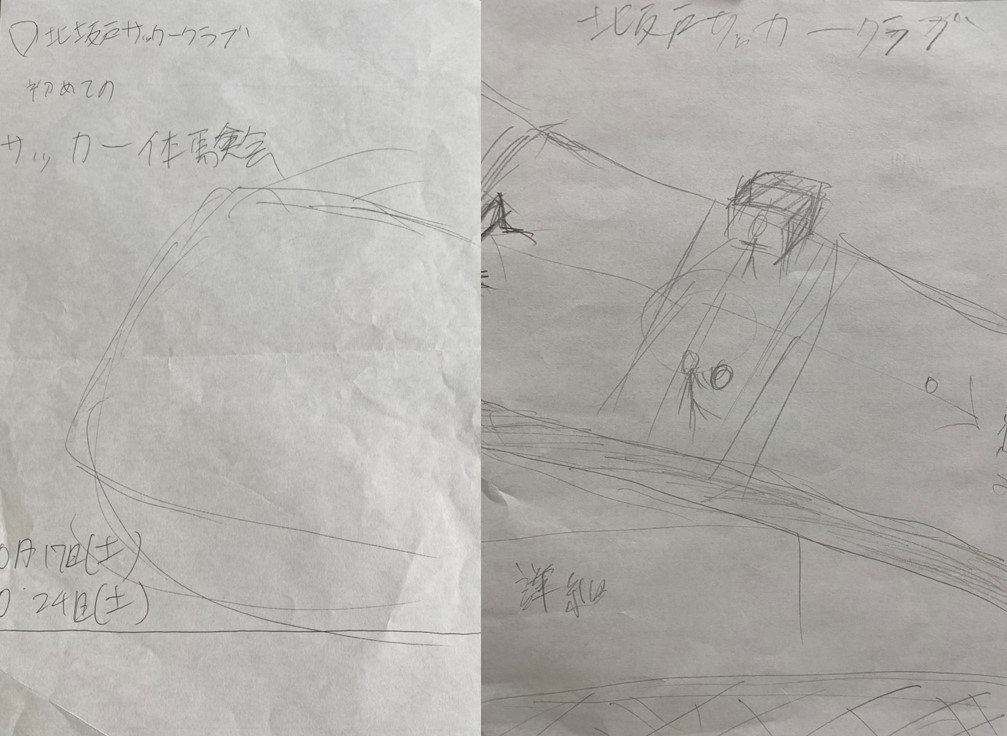 北坂戸サッカークラブ
初めての
サッカー体験会
0月17日(土)
0 24日(土)
北坂戸サッカークラブ
詳細